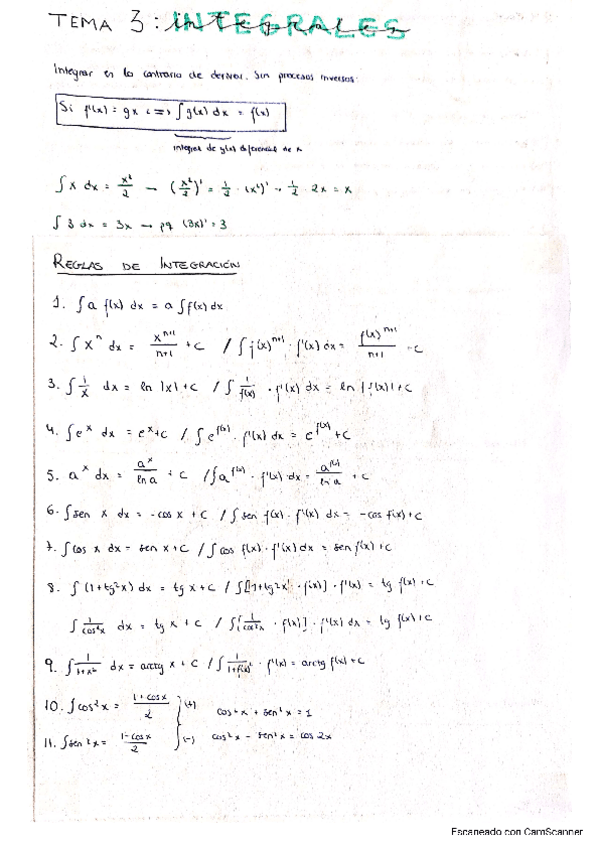 TEMA 3: INTEGRALES
Integrar es lo contrario de derivar. Sin procesos inversos:
Si f'(x) = gx <=> ∫g(x) dx = f(x)
integral de g(x) diferencial de x
∫ x dx = x²/2 → (x²/2)' = 1/2 · (x²)' → 1/2 · 2x = x
∫ 3 dx = 3x → pq (3x)' = 3
REGLAS DE INTEGRACIÓN
1. ∫ a f(x) dx = a ∫ f(x) dx
2. ∫ x^n dx = x^(n+1)/(n+1) + C / ∫ f(x)^(n+1) · f'(x) dx = f(x)^(n+1)/(n+1) + C
3. ∫ 1/x dx = ln |x| + C / ∫ 1/f(x) · f'(x) dx = ln |f(x)| + C
4. ∫ e^x dx = e^x + C / ∫ e^f(x) · f'(x) dx = e^f(x) + C
5. a^x dx = a^x/ln a + C / ∫ a^f(x) · f'(x) dx = a^f(x)/ln a + C
6. ∫ sen x dx = -cos x + C / ∫ sen f(x) · f'(x) dx = -cos f(x) + C
7. ∫ cos x dx = sen x + C / ∫ cos f(x) · f'(x) dx = sen f(x) + C
8. ∫ (1+tg²x) dx = tg x + C / ∫ [1+tg²x · f(x)] · f'(x) = tg f(x) + C
∫ 1/cos²x dx = tg x + C / ∫ [1/cos²x · f(x)] · f'(x) dx = tg f(x) + C
9. ∫ 1/1+x² dx = arctg x + C / ∫ 1/1+f(x)² · f'(x) = arctg f(x) + C
10. ∫ cos²x = 1+cosx/2 (+) cos²x + sen²x = 1
11. ∫ sen²x = 1-cosx/2 (-) cos²x - sen²x = cos 2x
Escaneado con CamScanner